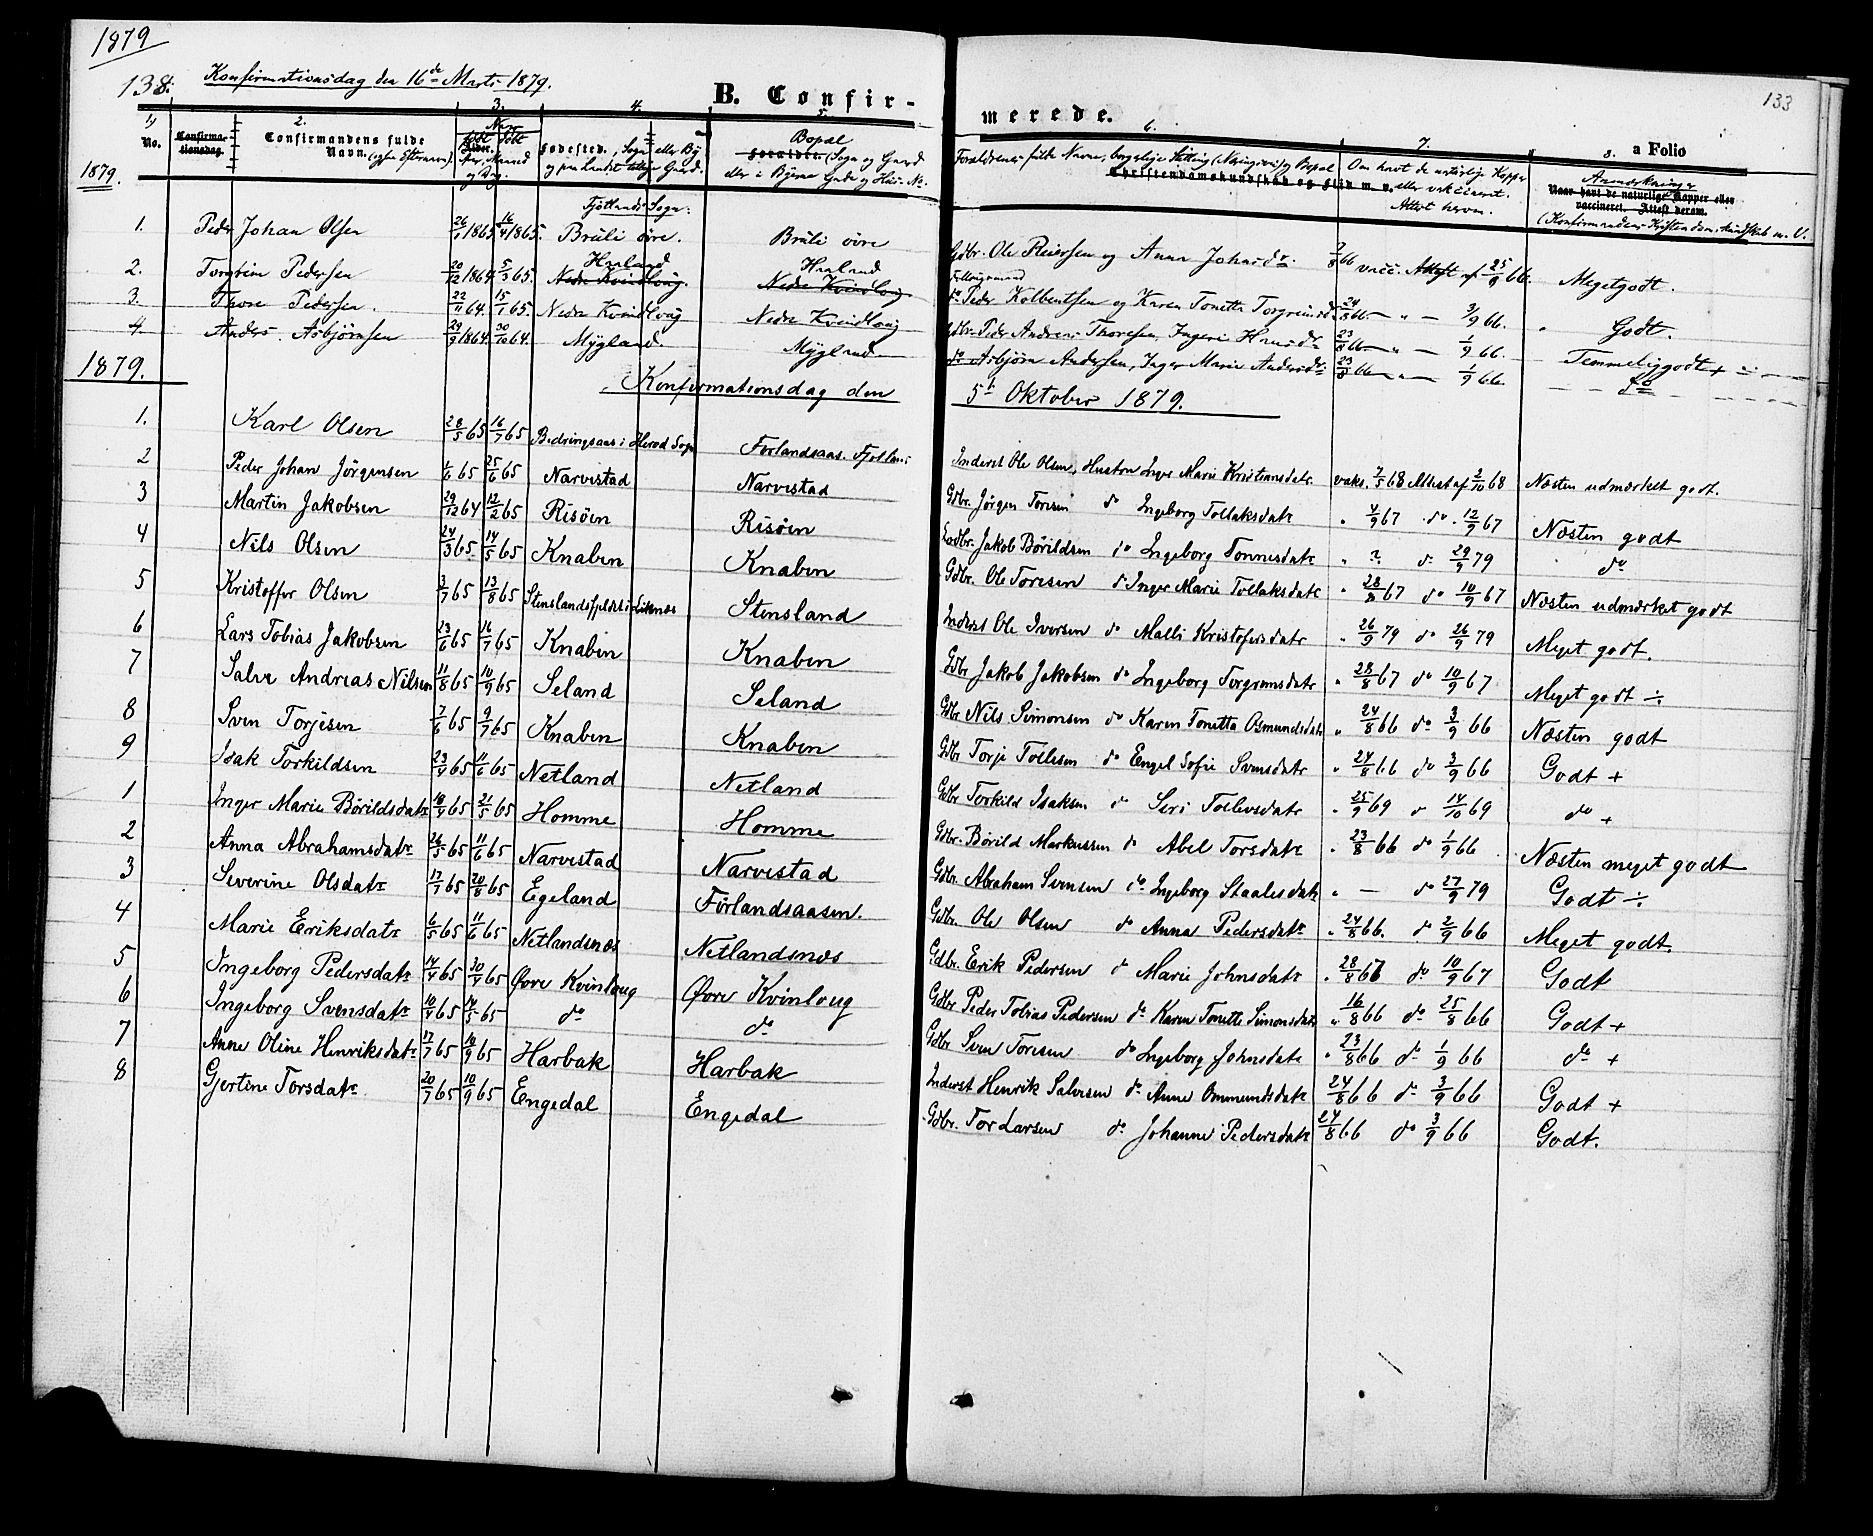 1879
138. Konfirmationsdag den 16de Marts 1879.
B. Confir-
merede.
133
a Folio
1) No. Confirmationsdag. 2. Confirmandens fulde Navn. (ogsaa Efternavn). 3. Naar født døbt Alder. Aar, Maaned og Dag. 4. Fødested, Sogn eller By og paa Landet tillige Gaard. 5. Bopæl Forældre. (Sogn og Gaard eller i Byerne Gade og Hus-No.
6. Forældrenes fulde Navne, borgerlige Stilling (Næringsvei) og Bopæl Christendomskundskab og Flid m. v. 7. Om havt de naturlige Kopper eller vaccineret. Attest herom. 8. Anmærkninger Naar havt de naturlige Kopper eller vaccineret. Attest derom. (Konfirmandens Kristendomskundskab m. V.
1879.
Fjotlands Sogn:
1. Peder Johan Olsen 26/1 1865 16/4 1865. Bruli øvre. Bruli øvre Gdbr. Ole Reiersen og Anna Johnsdr. 7/8 66 vacc. Attest af 25/9 66. Meget godt.
2. Torgrim Pedersen 20/12 1864 5/3 65. Haaland Nedre Kvindloug. Haaland Nedre Kvindloug. do Peder Kolbentsen og Karen Tonette Torgrimsdr 24/8 66 " — 3/9 66. Godt.
3. Thore Pedersen. 22/11 64. 15/1 65. Nedre Kvindloug Nedre Kvindloug Gdbr. Peder Andreas Thoresen, Ingeri Hansdr 23/8 66 " — 1/9 66. Temmelig godt + ÷
4. Anders Asbjørnsen 29/9 1864. 30/10 64. Mygland Mygland do Asbjørn Andersen, Inger Marie Andersdr 23/8 66 " — 1/9 66. do
1879. Konfirmationsdag den 5te Oktober 1879.
1. Karl Olsen 28/5 65 16/7 65 Bedringsaas i Herad Sogn Førlandsaas. Fjotland Inderst Ole Olsen, Hustru Inger Marie Kristiansdatr vaks. 7/5 68 Attest af 2/10 68 Næsten udmærket godt.
2 Peder Johan Jörgensen 1/6 65 25/6 65 Narvestad Narvestad Gdbr. Jörgen Toresen do Ingeborg Tollaksdatr " 4/9 67 do 12/9 67 Næsten godt
3 Martin Jakobsen 29/12 64 12/2 65 Risöen Risöen Gdbr. Jakob Börildsen do Ingeborg Tonnesdatr " ? do 29/9 79 do
4 Nils Olsen 24/3 65. 14/5 65 Knaben Knaben Gdbr. Ole Toresen do Inger Marie Tollaksdatr " 28/8 67 do 10/9 67 Næsten udmærket godt
5 Kristoffer Olsen 3/7 65 13/8 65 Stenslandsfjeldet i Liknes Stensland Inderst Ole Iversen do Malli Kristofersdatr " 26/9 79 do 26/9 79 Meget godt.
6 Lars Tobias Jakobsen 23/6 65 16/7 65 Knaben Knaben Gdbr Jakob Jakobsen do Ingeborg Torgrimsdatr " 28/8 67 do 10/9 67 Meget godt ÷
7 Salve Andreas Nilsen 11/8 65 10/9 65 Seland Seland Gdbr Nils Simonsen do Karen Tonetta Osmundsdatr " 24/8 66 do 3/9 66 Næsten godt
8 Sven Torjesen 7/6 65 9/7 65 Knaben Knaben Gdbr Torje Tollesen do Engel Sofie Svensdatr " 24/8 66 do 3/9 66 Godt +
9 Isak Torkildsen 23/4 65 11/6 65 Netland Netland Gdbr Torkild Isaksen do Seri Tollevsdatr " 25/9 69 do 14/10 69 do +
1 Inger Marie Börildsdatr 18/4 65 21/5 65 Homme Homme Gdbr. Börild Markussen do Abel Torsdatr " 23/8 66 do 1/9 66 Næsten meget godt
2 Anna Abrahamsdatr 26/5 65 11/6 65 Narvestad Narvestad Gdbr. Abraham Svensen do Ingeborg Staalesdatr " — do 27/9 79 Godt ÷
3 Severine Olsdatr 17/7 65 20/8 65 Egeland Förlandsaasen. Gdbr. Ole Olsen do Anna Pedersdatr " 24/8 66. do 2/9 66 Meget godt.
4 Marie Eriksdatr 6/5 65 11/6 65 Netlandsnes Netlandsnes Gdbr. Erik Pedersen do Marie Johnsdatr " 28/8 67 do 10/9 67 Godt
5 Ingeborg Pedersdatr 14/4 65 30/4 65 Øvre Kvinloug Øvre Kvinloug Gdbr Peder Tobias Pedersen do Karen Tonette Simonsdatr " 16/8 66 do 25/8 66 Godt +
6 Ingeborg Svensdatr 10/4 65 14/5 65 do do Gdbr Sven Toresen do Ingeborg Johnsdatr " 23/8 66 do 1/9 66 do +
7 Anne Oline Henriksdatr 17/7 65 10/9 65 Harbak Harbak Inderst Henrik Salvesen do Anne Ommundsdatr 24/8 66 do 3/9 66 Godt +
8 Gjertine Torsdatr 20/7 65 10/9 65 Engedal Engedal Gdbr. Tor Larsen do Johanne Pedersdatr 24/8 66 do 3/9 66 Godt.